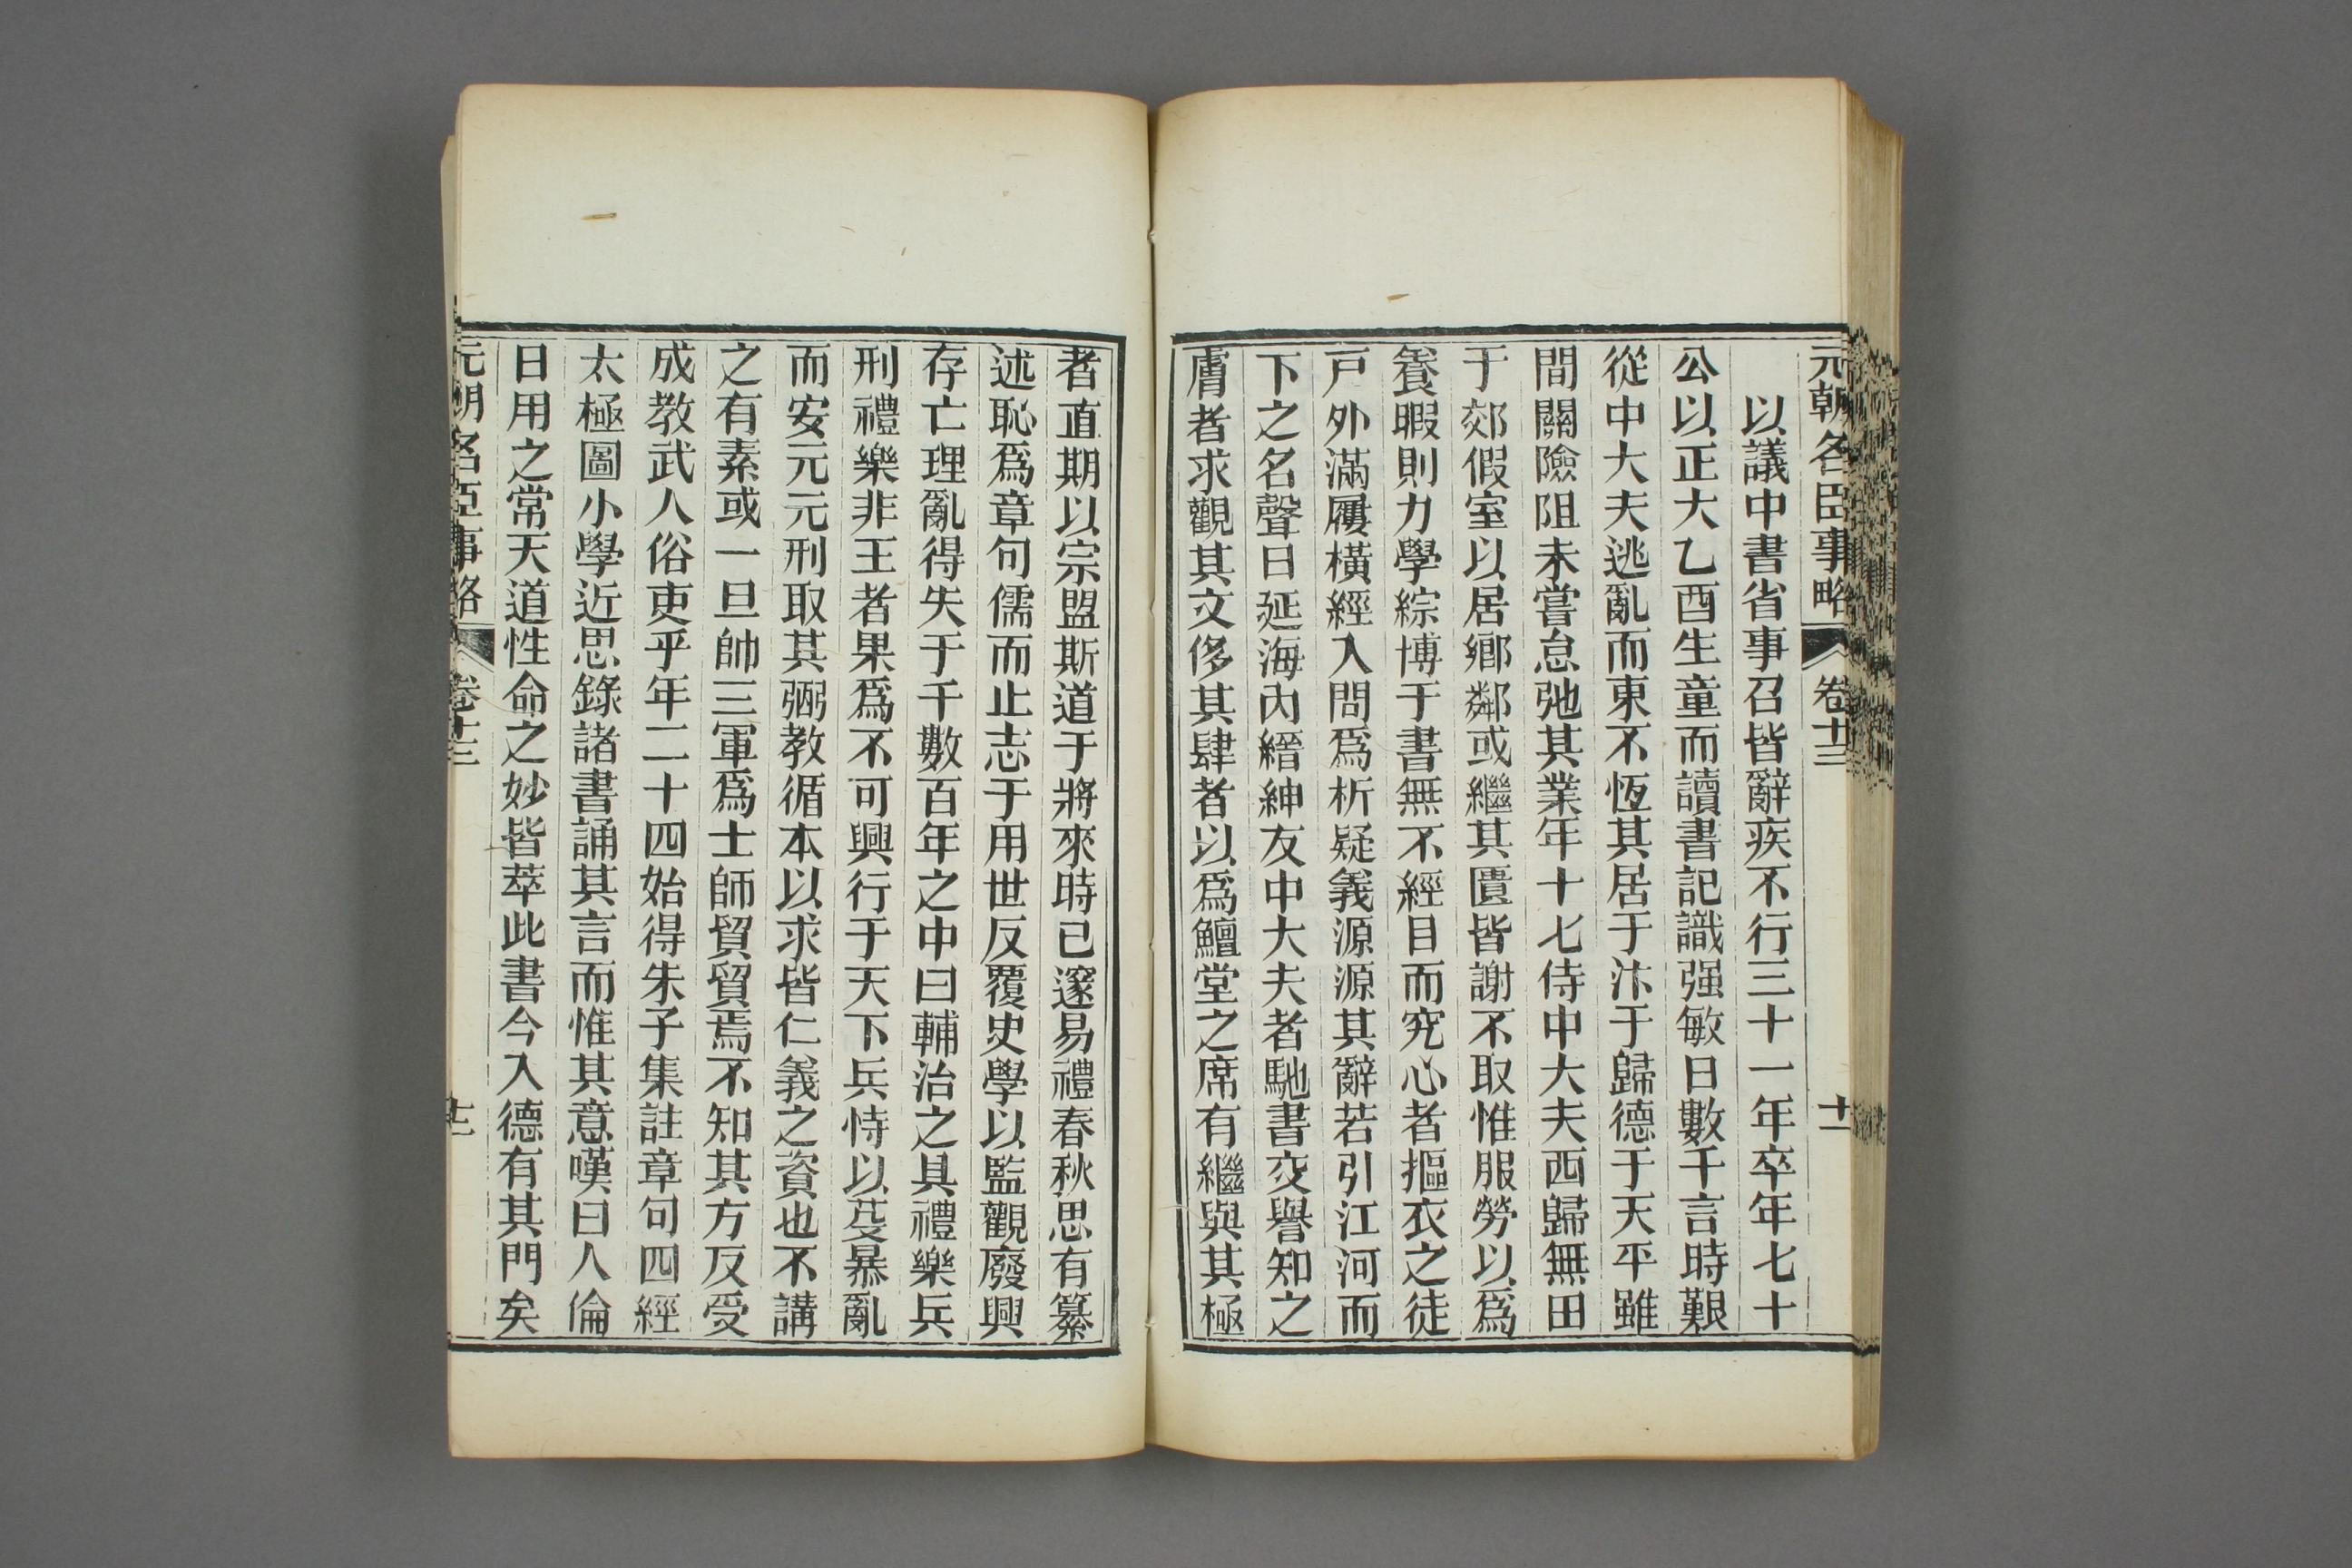 元朝名臣事略 卷十三 十一
以議中書省事召皆辭疾不行三十一年卒年七十
公以正大乙酉生童而讀書記識强敏日數千言時艱
從中大夫逃亂而東不恆其居于汴于歸德于天平雖
間關險阻未嘗怠弛其業年十七侍中大夫西歸無田
于郊假室以居鄉鄰或繼其匱皆謝不取惟服勞以爲
養暇則力學綜博于書無不經目而究心者摳衣之徒
戸外滿屨橫經入問爲析疑義源源其辭若引江河而
下之名聲日延海內縉紳友中大夫者馳書交譽知之
膚者求觀其文侈其肆者以爲鱣堂之席有繼與其極
者直期以宗盟斯道于將來時已邃易禮春秋思有纂
述恥爲章句儒而止志于用世反覆史學以監觀廢興
存亡理亂得失于千數百年之中曰輔治之具禮樂兵
刑禮樂非王者果爲不可興行于天下兵恃以芟暴亂
而安元元刑取其弼教循本以求皆仁義之資也不講
之有素或一旦帥三軍爲士師貿貿焉不知其方反受
成教武人俗吏乎年二十四始得朱子集註章句四經
太極圖小學近思錄諸書誦其言而惟其意嘆曰人倫
日用之常天道性命之妙皆萃此書今入德有其門矣
元朝名臣事略 卷十三 十二